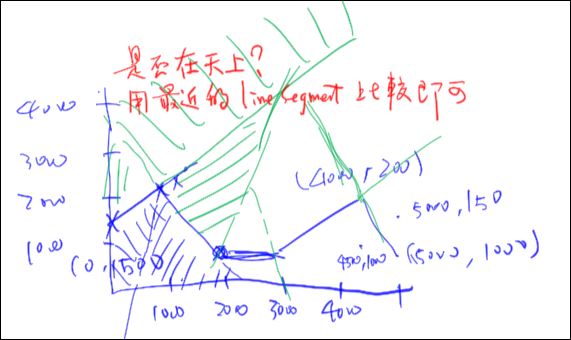 是否在天上?
用最近的 line segment 比較即可
4000
3000
2000
1000
(0,1500)
(4000,200)
.5000,150
4500,1000
(5000,1000)
1000
2000
3000
4000